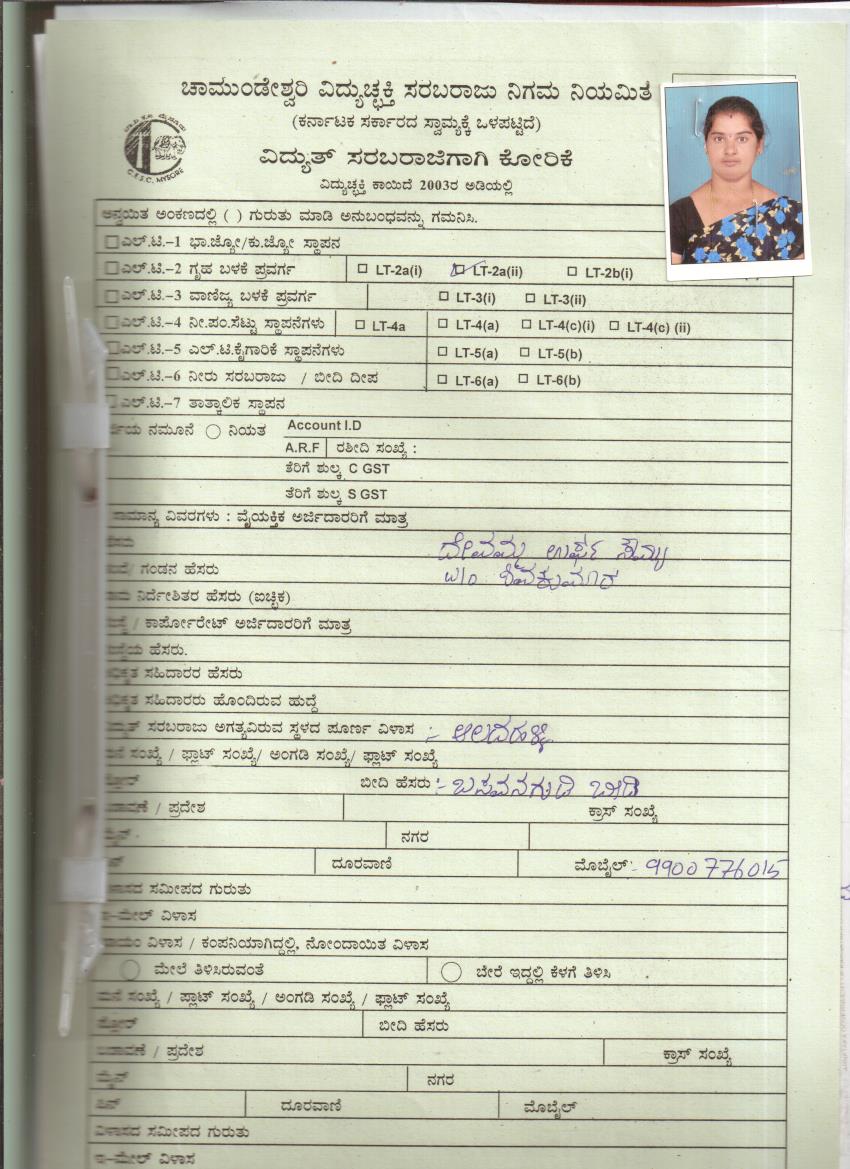 ಚಾಮುಂಡೇಶ್ವರಿ ವಿದ್ಯುಚ್ಛಕ್ತಿ ಸರಬರಾಜು ನಿಗಮ ನಿಯಮಿತ
(ಕರ್ನಾಟಕ ಸರ್ಕಾರದ ಸ್ವಾಮ್ಯಕ್ಕೆ ಒಳಪಟ್ಟಿದೆ)
C.E.S.C. MYSORE
ವಿದ್ಯುತ್ ಸರಬರಾಜಿಗಾಗಿ ಕೋರಿಕೆ
ವಿದ್ಯುಚ್ಛಕ್ತಿ ಕಾಯಿದೆ 2003ರ ಅಡಿಯಲ್ಲಿ
ಅನ್ವಯಿತ ಅಂಕಣದಲ್ಲಿ ( ) ಗುರುತು ಮಾಡಿ ಅನುಬಂಧವನ್ನು ಗಮನಿಸಿ.
ಎಲ್.ಟಿ.–1 ಭಾ.ಜ್ಯೋ/ಕು.ಜ್ಯೋ ಸ್ಥಾಪನ
ಎಲ್.ಟಿ.–2 ಗೃಹ ಬಳಕೆ ಪ್ರವರ್ಗ LT-2a(i) LT-2a(ii) LT-2b(i)
ಎಲ್.ಟಿ.–3 ವಾಣಿಜ್ಯ ಬಳಕೆ ಪ್ರವರ್ಗ LT-3(i) LT-3(ii)
ಎಲ್.ಟಿ.–4 ನೀ.ಪಂ.ಸೆಟ್ಟು ಸ್ಥಾಪನೆಗಳು LT-4a LT-4(a) LT-4(c)(i) LT-4(c) (ii)
ಎಲ್.ಟಿ.–5 ಎಲ್.ಟಿ.ಕೈಗಾರಿಕೆ ಸ್ಥಾಪನೆಗಳು LT-5(a) LT-5(b)
ಎಲ್.ಟಿ.–6 ನೀರು ಸರಬರಾಜು / ಬೀದಿ ದೀಪ LT-6(a) LT-6(b)
ಎಲ್.ಟಿ.–7 ತಾತ್ಕಾಲಿಕ ಸ್ಥಾಪನ
ನಮೂನೆ ನಿಯತ Account I.D
A.R.F ರಶೀದಿ ಸಂಖ್ಯೆ :
ತೆರಿಗೆ ಶುಲ್ಕ C GST
ತೆರಿಗೆ ಶುಲ್ಕ S GST
ಸಾಮಾನ್ಯ ವಿವರಗಳು : ವೈಯಕ್ತಿಕ ಅರ್ಜಿದಾರರಿಗೆ ಮಾತ್ರ
ಹೆಸರು ದೇವಮ್ಮ ಉರ್ಫ ಸೌಮ್ಯ
ಗಂಡನ ಹೆಸರು W/o ಶಿವಕುಮಾರ
ನಿರ್ದೇಶಿತರ ಹೆಸರು (ಐಚ್ಛಿಕ)
/ ಕಾರ್ಪೋರೇಟ್ ಅರ್ಜಿದಾರರಿಗೆ ಮಾತ್ರ
ಹೆಸರು.
ಸಹಿದಾರರ ಹೆಸರು
ಸಹಿದಾರರು ಹೊಂದಿರುವ ಹುದ್ದೆ
ಸರಬರಾಜು ಅಗತ್ಯವಿರುವ ಸ್ಥಳದ ಪೂರ್ಣ ವಿಳಾಸ :- ಆಲದಹಳ್ಳಿ
ಮನೆ ಸಂಖ್ಯೆ / ಫ್ಲಾಟ್ ಸಂಖ್ಯೆ/ ಅಂಗಡಿ ಸಂಖ್ಯೆ/ ಫ್ಲಾಟ್ ಸಂಖ್ಯೆ
ಬೀದಿ ಹೆಸರು :- ಬಸವನಗುಡಿ ಬೀದಿ
/ ಪ್ರದೇಶ ಕ್ರಾಸ್ ಸಂಖ್ಯೆ
ನಗರ
ದೂರವಾಣಿ ಮೊಬೈಲ್ :- 9900776015
ಸಮೀಪದ ಗುರುತು
ಇ–ಮೇಲ್ ವಿಳಾಸ
ವಿಳಾಸ / ಕಂಪನಿಯಾಗಿದ್ದಲ್ಲಿ, ನೋಂದಾಯಿತ ವಿಳಾಸ
ಮೇಲೆ ತಿಳಿಸಿರುವಂತೆ ಬೇರೆ ಇದ್ದಲ್ಲಿ ಕೆಳಗೆ ತಿಳಿಸಿ
ಮನೆ ಸಂಖ್ಯೆ / ಪ್ಲಾಟ್ ಸಂಖ್ಯೆ / ಅಂಗಡಿ ಸಂಖ್ಯೆ / ಫ್ಲಾಟ್ ಸಂಖ್ಯೆ
ಬೀದಿ ಹೆಸರು
ಬಡಾವಣೆ / ಪ್ರದೇಶ ಕ್ರಾಸ್ ಸಂಖ್ಯೆ
ನಗರ
ಪಿನ್ ದೂರವಾಣಿ ಮೊಬೈಲ್
ವಿಳಾಸದ ಸಮೀಪದ ಗುರುತು
ಇ–ಮೇಲ್ ವಿಳಾಸ